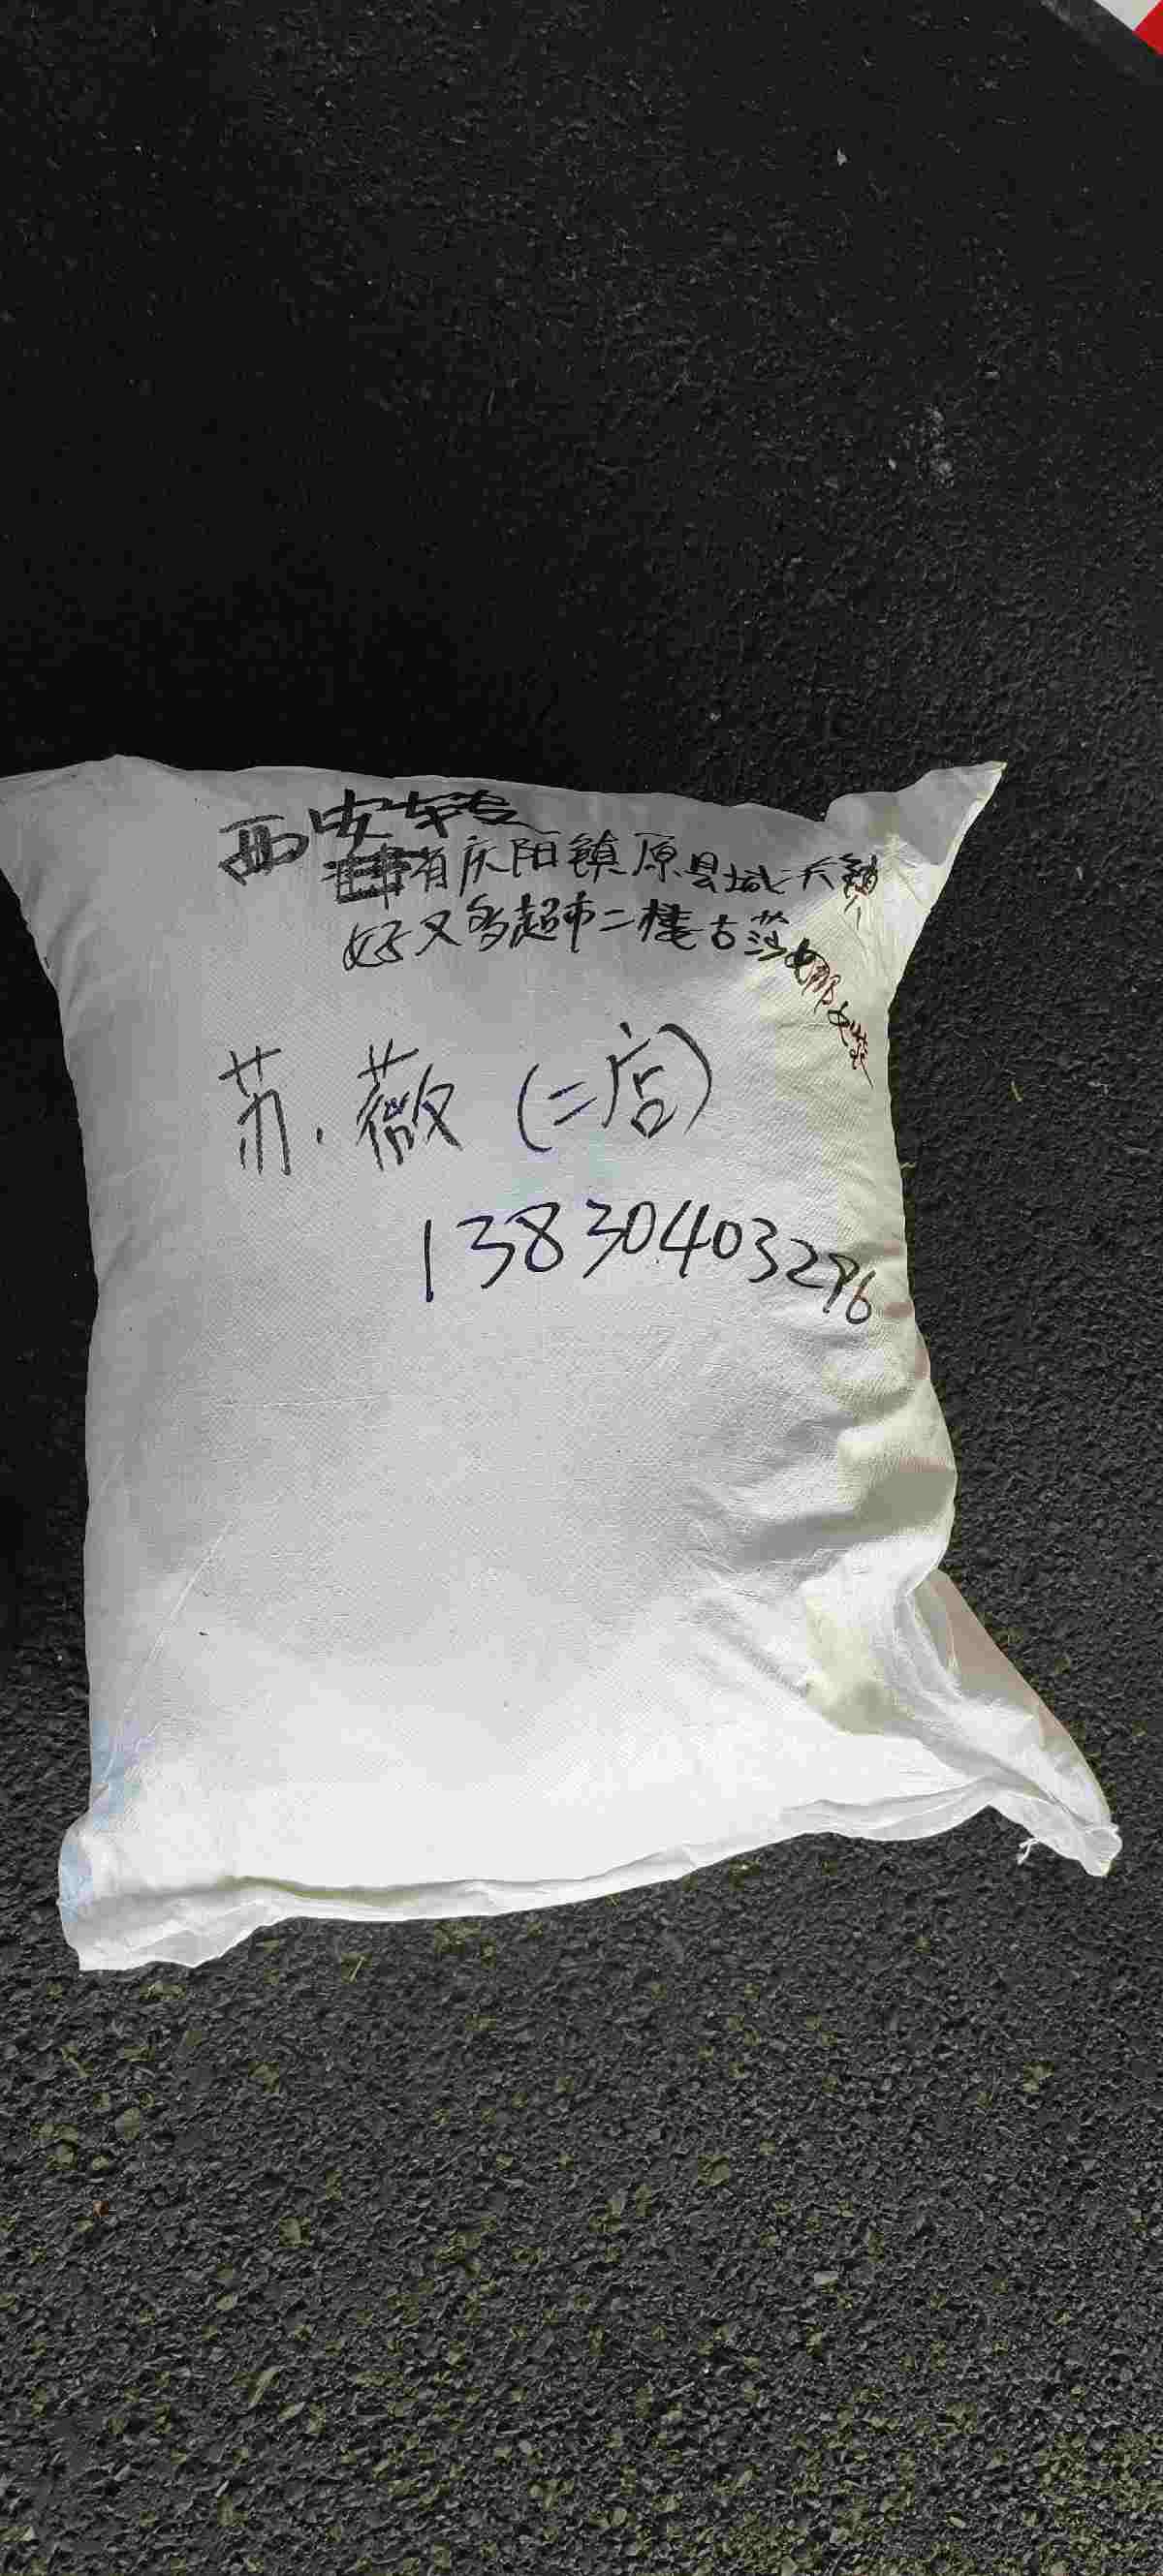 西安转
肃省庆阳镇原县城
好又多超市二楼古莎女那女装
苏.薇(二店)
13830403296